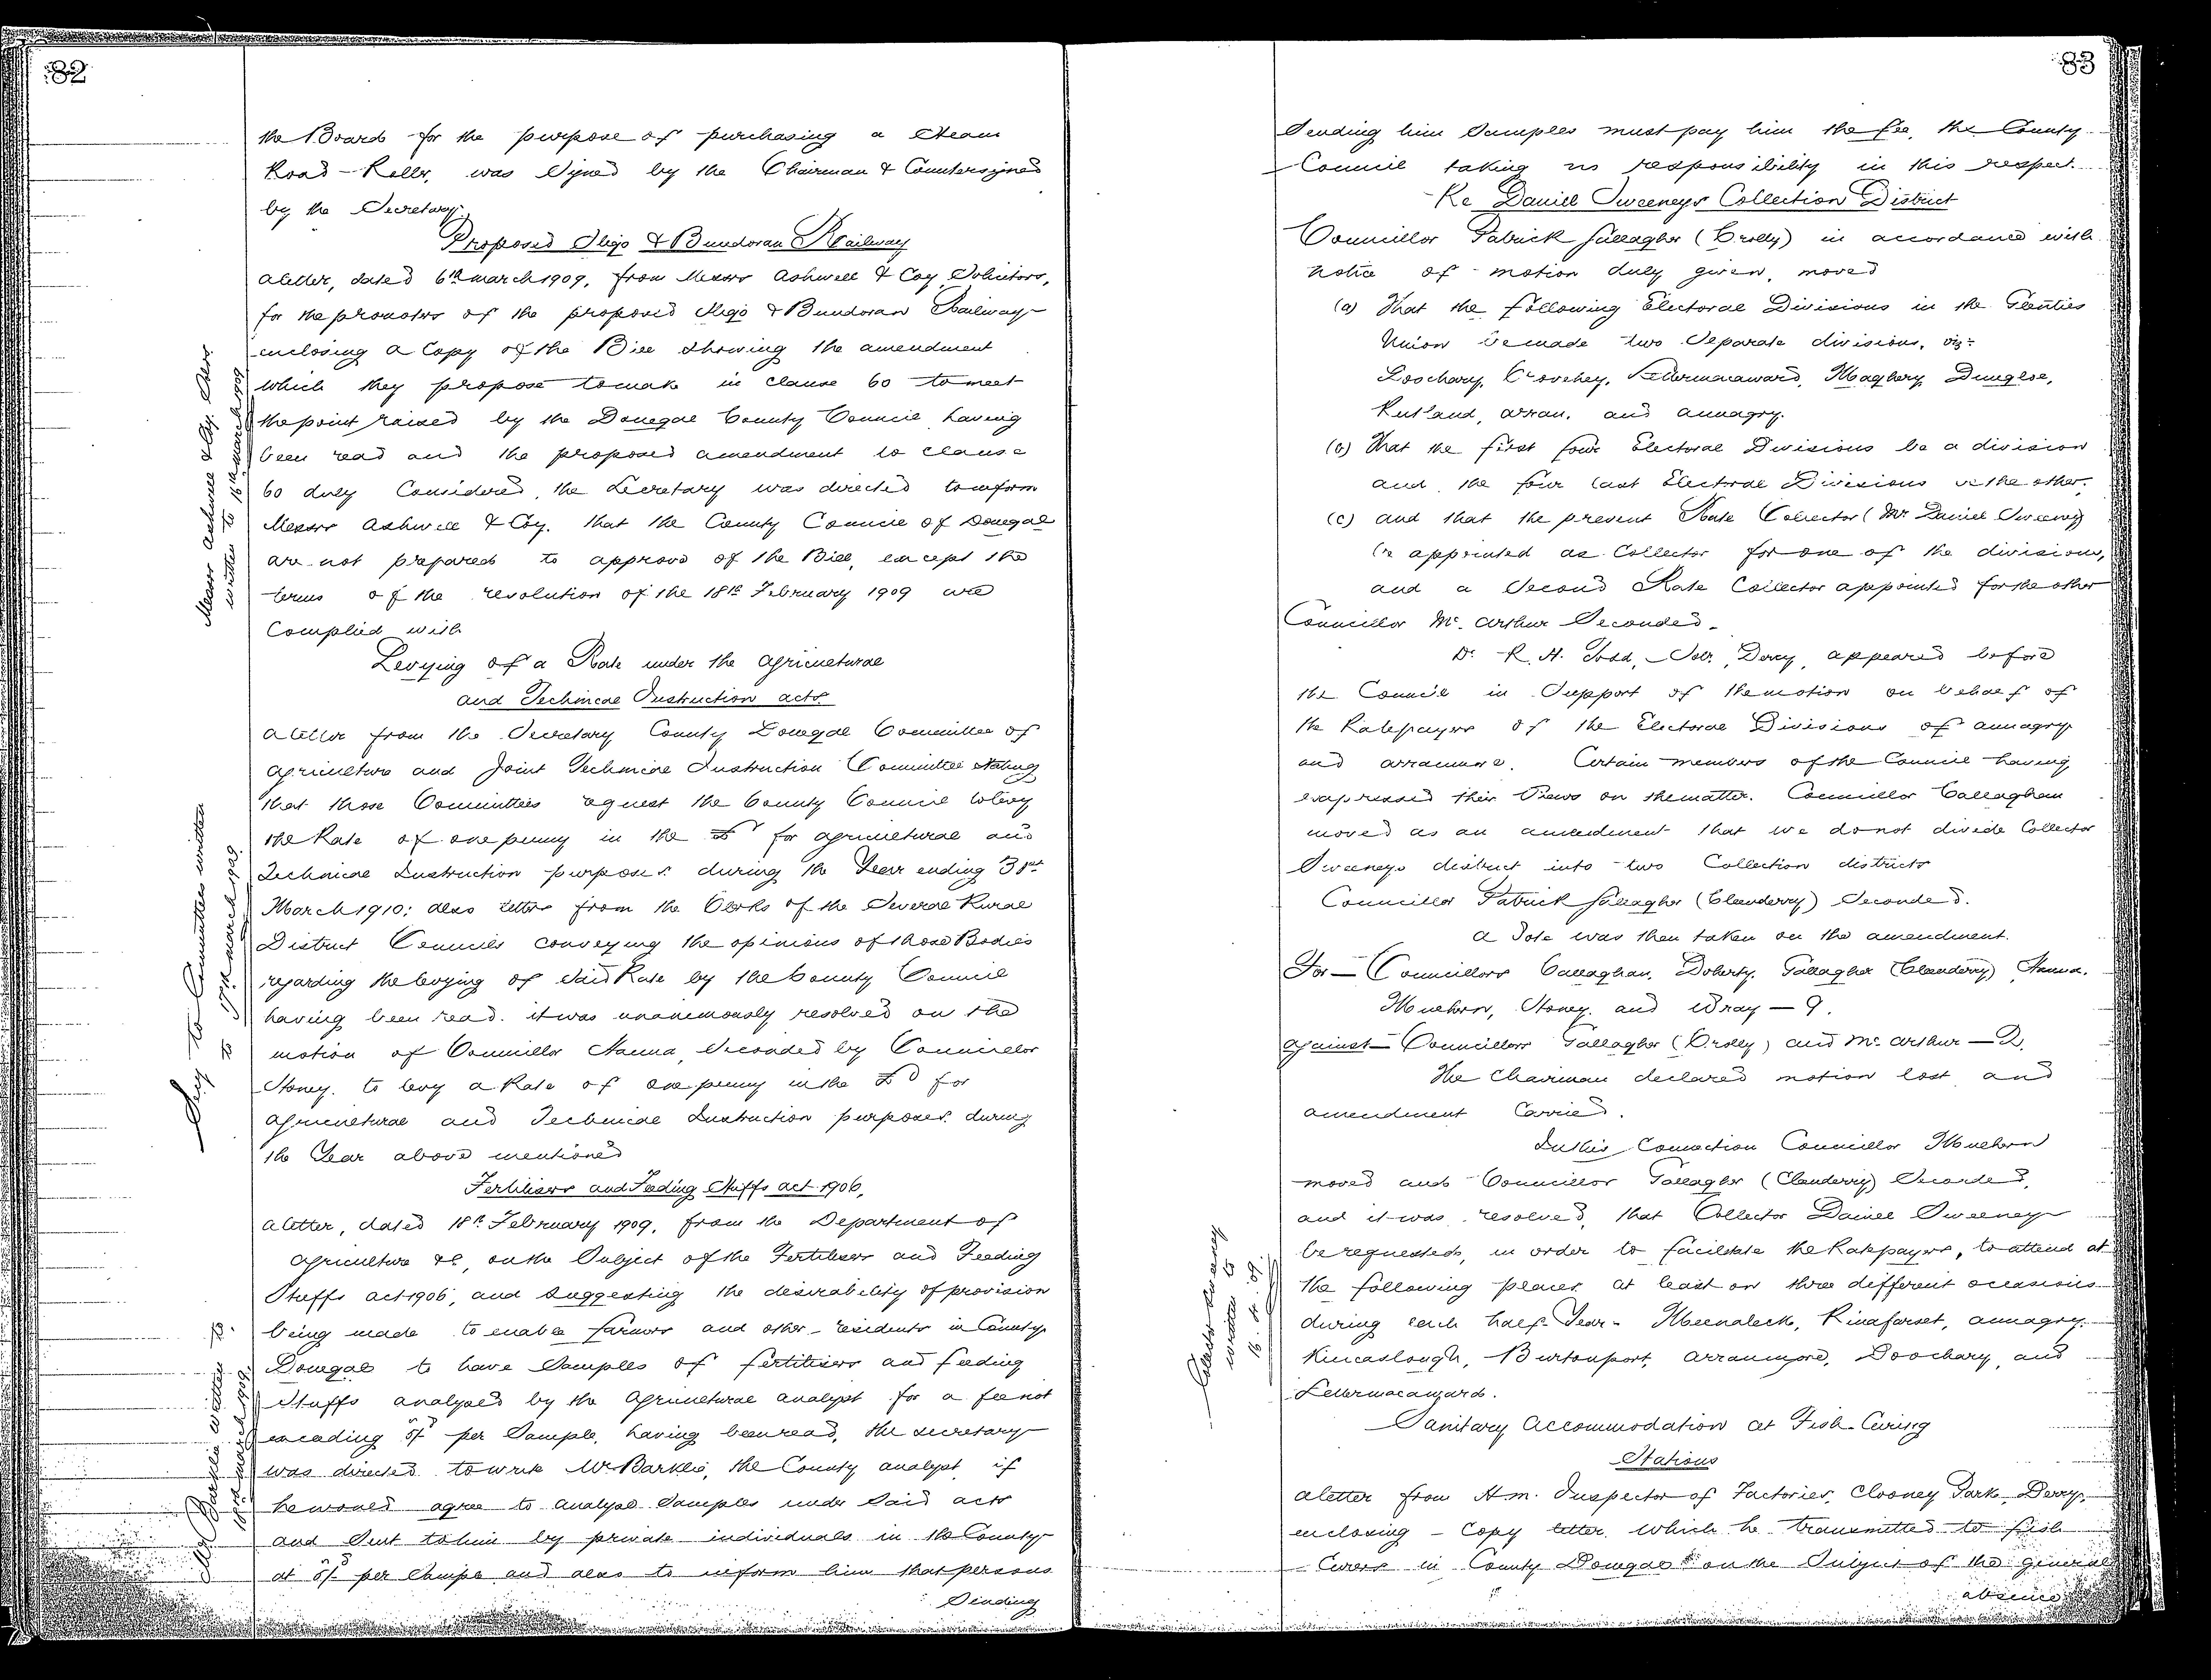 82
the Board for the purpose of purchasing a Steam
Road-Roller, was signed by the Chairman & Countersigned
by the Secretary.
Proposed Sligo & Bundoran Railway
A letter, dated 6th March 1909, from Messrs Ashwell & Coy Solicitors,
for the promoters of the proposed Sligo & Bundoran Railway
enclosing a Copy of the Bill showing the amendment
which they propose to make in Clause 60 to meet
the point raised by the Donegal County Council having
been read and the proposed amendment to Clause
60 duly Considered, the Secretary was directed to inform
Messrs Ashwell & Coy. that the County Council of Donegal
are not prepared to approve of the Bill, except the
terms of the resolution of the 18th February 1909 are
Complied with
Messrs Ashwell & Coy. Slrs
written to 16th March 1909
Levying of a Rate under the Agricultural
and Technical Instruction Acts
A letter from the Secretary County Donegal Committee of
Agriculture and Joint Technical Instruction Committee stating
that those Committees request the County Council to levy
the Rate of one penny in the £ for Agricultural and
Technical Instruction purposes during the Year ending 31st
March 1910; also letters from the Clerks of the Several Rural
District Councils conveying the opinions of those Bodies
regarding the levying of said Rate by the County Council
having been read. it was unanimously resolved on the
motion of Councillor Hanna, Seconded by Councillor
Stoney. to levy a Rate of one penny in the £ for
Agricultural and Technical Instruction purposes. during
the Year above mentioned
Secy to Committee written
to 17th March 1909
Fertilisers and Feeding Stuffs Act 1906,
A letter, dated 18th February 1909, from the Department of
Agriculture &c, on the Subject of the Fertilisers and Feeding
Stuffs Act 1906, and suggesting the desirability of provision
being made to enable farmers and other residents in County
Donegal to have Samples of fertilisers and feeding
Stuffs analysed by the Agricultural Analyst for a fee not
exceeding 5/- per Sample, having been read, the secretary
was directed to write Mr Barklie, the County Analyst, if
he would agree to analyse Samples under said acts
and Sent to him by private individuals in the County
at 5/- per Sample and also to inform him that persons
Sending
Mr Barklie written to
March 1909
83
Sending him Samples must pay him the fee, the County
Council taking no responsibility in this respect.
Re Daniel Sweeneys Collection District
Councillor Patrick Gallagher (Crolly) in accordance with
notice of motion duly given, moved
(a) That the following Electoral Divisions in the Glenties
Union be made two Separate divisions, viz:-
Doochary, Crovehy, Lettermacaward, Maghery, Dungloe,
Rutland, Arran, and Annagry.
(b) That the first four Electoral Divisions be a division
and the four last Electoral Divisions be the other.
(c) and that the present Rate Collector (Mr Daniel Sweeney)
be appointed as Collector for one of the divisions,
and a Second Rate Collector appointed for the other
Councillor Mc.Arthur Seconded.
Dr. R. H. Todd, Solr, Derry, appeared before
the Council in Support of the motion on behalf of
the Ratepayers of the Electoral Divisions of Annagry
and Arranmore. Certain members of the Council having
expressed their Views on the matter. Councillor Callaghan
moved as an amendment that we do not divide Collector
Sweeneys district into two Collection districts
Councillor Patrick Gallagher (Clenderry) Seconded.
A Vote was then taken on the amendment.
For — Councillors Callaghan, Doherty, Gallagher (Clenderry), Hanna.
Mulhern, Stoney, and Wray — 7.
Against — Councillors Gallagher (Crolly) and Mc Arthur — 2.
The Chairman declared motion lost and
amendment Carried.
In this Connection Councillor Mulhern
moved and Councillor Gallagher (Clenderry) Seconded,
and it was resolved, that Collector Daniel Sweeney
be requested, in order to facilitate the Ratepayers, to attend at
the following places at least on three different occasions
during each half-Year - Meenaleck, Rinafarset, Annagry.
Kincaslough, Burtonport, Arranmore, Doochary, and
Lettermacaward.
Collector Sweeney
written to
Sanitary Accommodation at Fish-Curing
Stations
A letter from H.M. Inspector of Factories, Clooney Park, Derry,
enclosing Copy letter which he transmitted to fish
Curers in County Donegal on the Subject of the general
absence